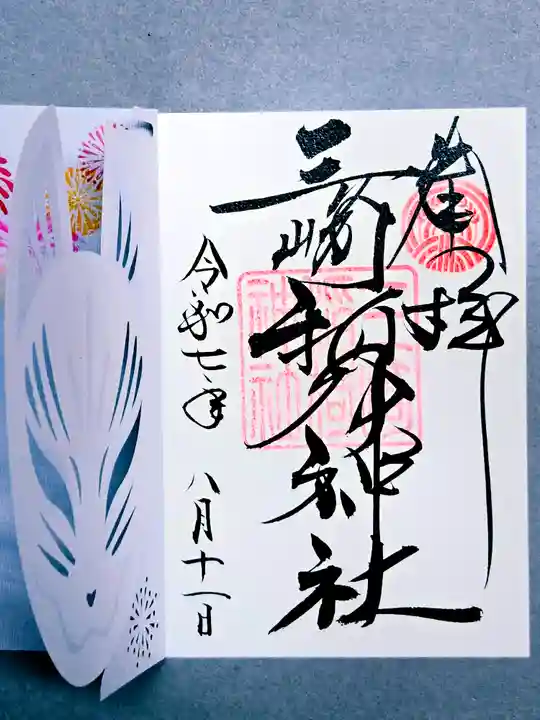 奉拝
三崎稲荷神社
令和七年
八月十一日